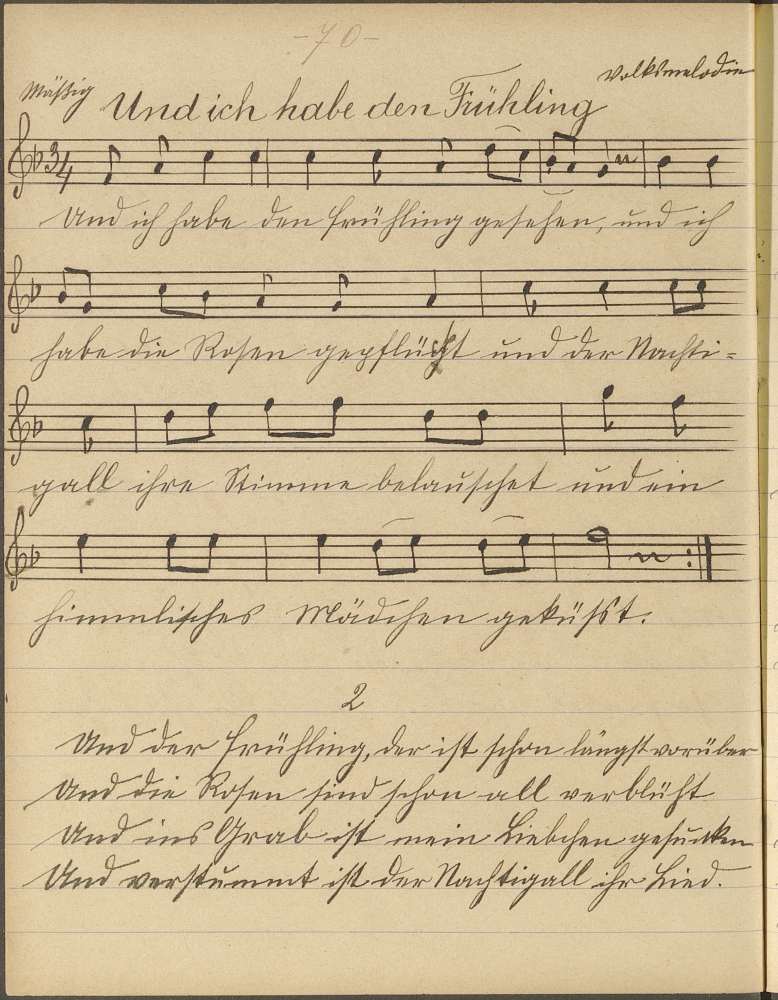 -70-
Mäßig
Volksmelodie
Und ich habe den Frühling
3/4
Und ich habe den Frühling gesehen, und ich
habe die Rosen gepflückt und der Nachti=
gall ihre Stimme belauschet und ein
himmlisches Mädchen geküßt.
2
Und der Frühling, der ist schon längst vorüber
Und die Rosen sind schon all verblüht
Und ins Grab ist mein Liebchen gesunken
Und verstummt ist der Nachtigall ihr Lied.